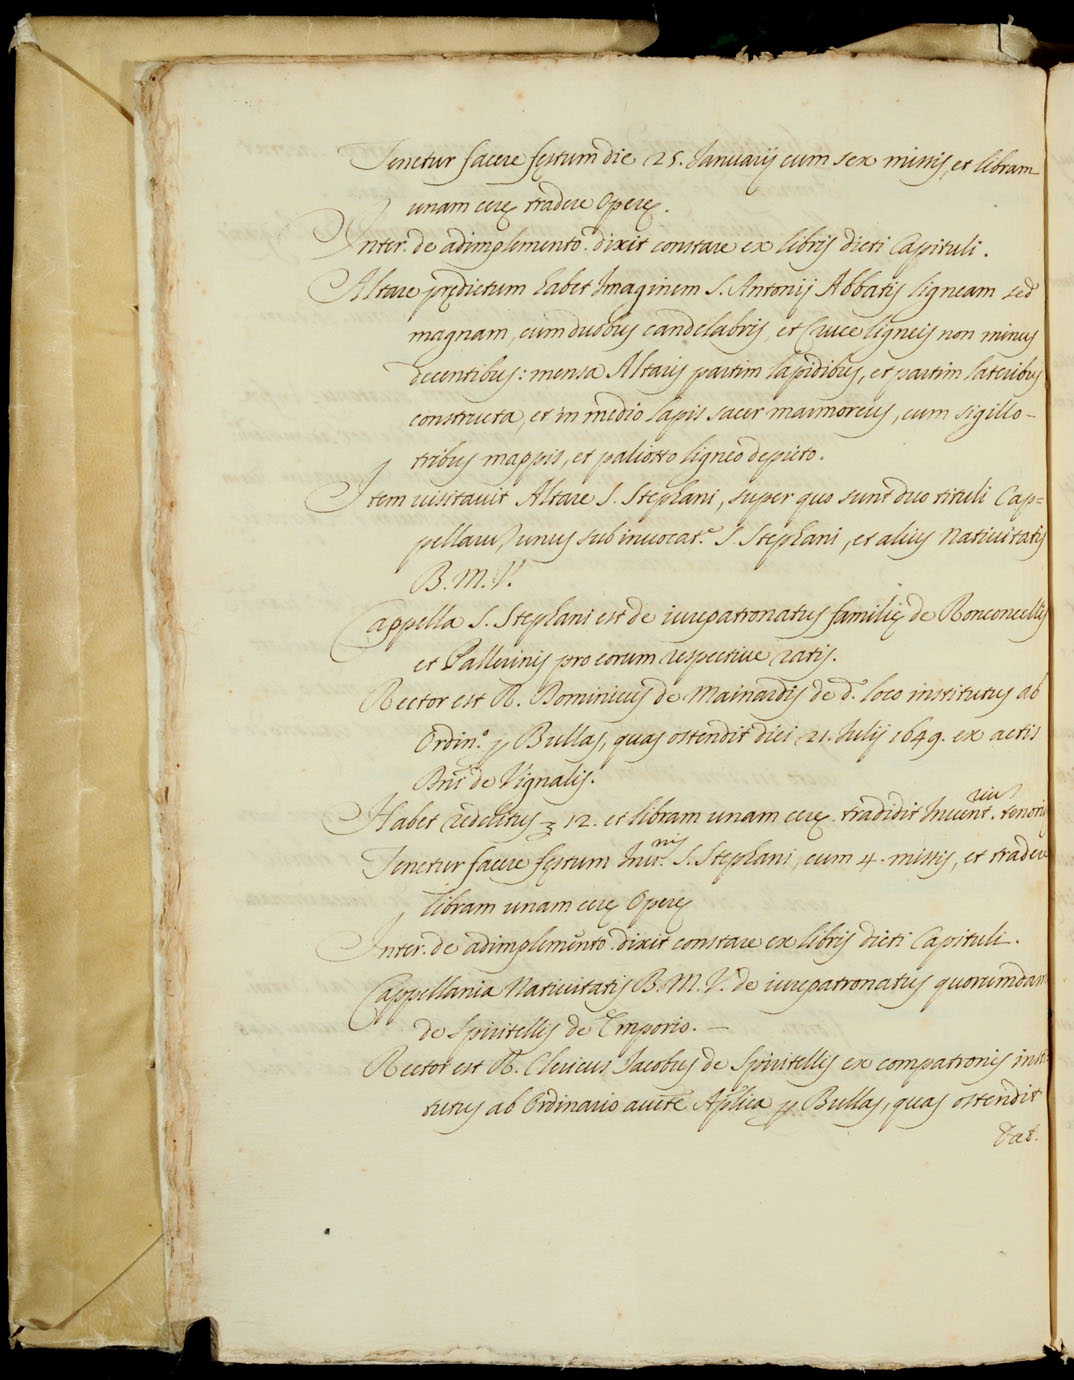 Tenetur facere festum die 25. Ianuarij cum sex missis, et libram
unam cerę tradere Operę.
Inter. de adimplemento. dixit constare ex libris dicti Capituli.
Altare prędictum habet Imaginem S. Antonij Abbatis ligneam sed
magnam, cum duobus candelabris, et Cruce ligneis non minus
decentibus: mensa Altaris partim lapidibus, et partim lateribus
constructa, et in medio lapis sacer marmoreus, cum sigillo -
tribus mappis, et paliotto ligneo depicto.
Item visitavit Altare S. Stephani, super quo sunt duo tituli Cap=
pellaru, unus sub invocat.e S. Stephani, et alius Nativitatis
B. M. V.
Cappella S. Stephani est de iurepatronatus familię de Ronconcellis
et Pallerinis pro eorum respective ratis.
Rector est R. Dominicus de Mainardis de d.o loco institutus ab
Ordin.o p Bullas, quas ostendit diei 21. Iulij 1649. ex actis
Bni de Vignalis.
Habet redditus 12. et libram unam cerę. tradidit Invent.riu tenoris
Tenetur facere festum Inv.nis S. Stephani, cum 4. missis, et tradere
libram unam cerę Operę
Inter. de adimplemēto. dixit constare ex libris dicti Capituli.
Cappellania Nativitatis B. M. V. de iurepatronatus quorumdam
de Spiritellis de Emporio. -
Rector est R. Clericus Iacobus de Spiritellis ex compatronis insti
tutus ab Ordinario aucte Aplica p Bullas, quas ostendit
Dat.